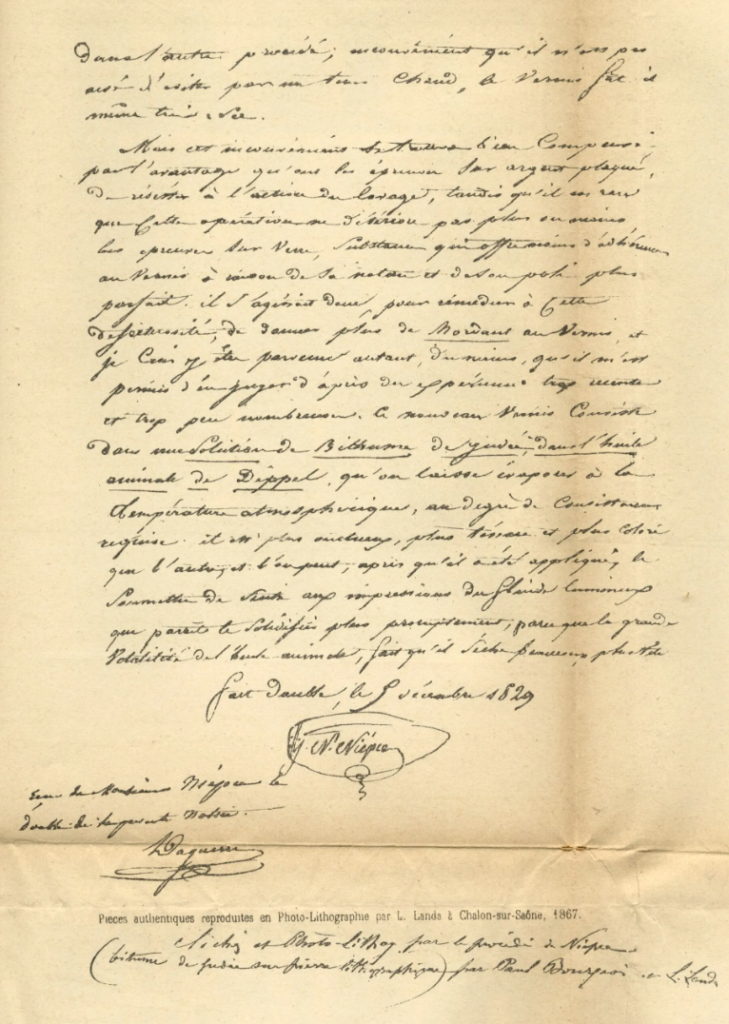 dans l'autre procédé; inconvénient qu'il n'est pas
aisé d'éviter par un tems chaud, le Vernis fut-il
même très-sec.
Mais cet inconvénient se trouve bien compensé
par l'avantage qu'ont les épreuves sur argent plaqué,
de résister à l'action du lavage, tandis qu'il est rare
que cette opération ne détériore pas plus ou moins
les épreuves sur verre, substance qui offre moins d'adhérence
au Vernis à raison de sa nature et de son poli plus
parfait. il s'agissait donc, pour remédier à cette
défectuosité, de donner plus de Mordant au Vernis, et
je crois y être parvenu autant, du moins, qu'il m'est
permis d'en juger d'après des expériences trop récentes
et trop peu nombreuses. Ce nouveau Vernis consiste
dans une Solution de Bithume de Judée dans l'huile
animale de Dippel, qu'on laisse évaporer à la
température atmosphérique, au degré de consistance
requise. il est plus onctueux, plus tenace et plus coloré
que l'autre, et l'on peut, après qu'il a été appliqué, le
soumettre de suite aux impressions du fluide lumineux
qui parait le solidifier plus promptement, parce que la grande
Volatilité de l'huile animale, fait qu'il sèche beaucoup plus vite
fait double, le 5 décembre 1829
J. N. Niépce
Reçu de Monsieur Niépce le
double de la présente Notice
Daguerre
Pièces authentiques reproduites en Photo-Lithographie par L. Landa à Chalon-sur-Saône, 1867.
cliché et Photo-lithog par le procédé de Niépce
(bitume de Judée sur pierre lithographique) par Paul Bourgeois et L. Landa